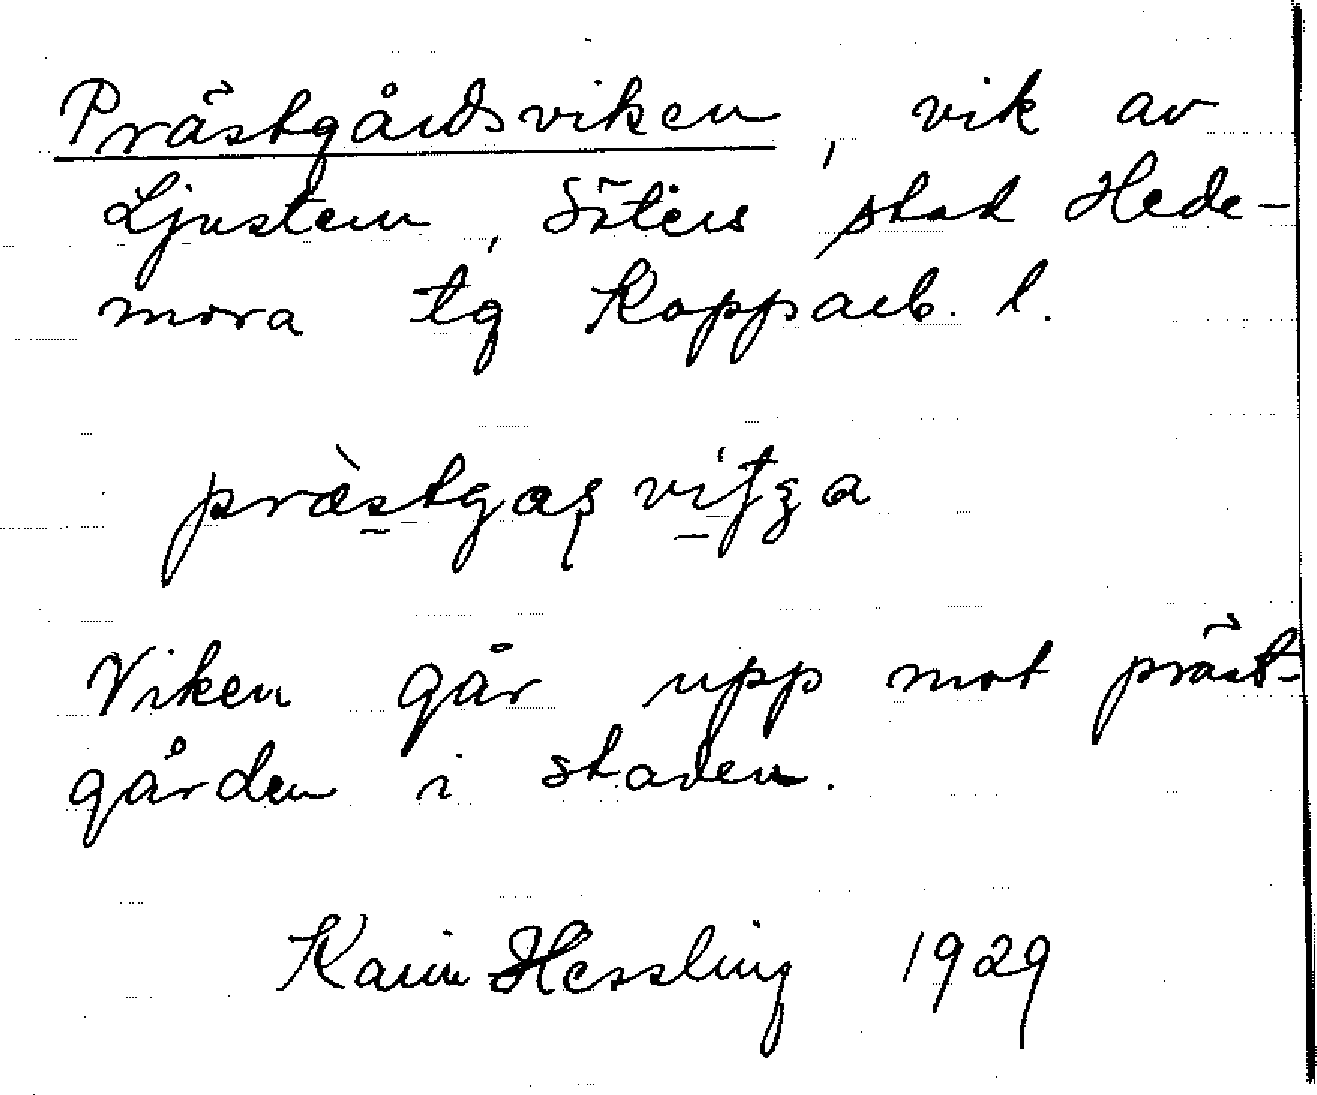 Prästgårdsviken, vik av
Ljustern, Säters stad Hede-
mora tg Kopparb. l.
Viken går upp mot präst-
gården i staden.
Karin Hessling 1929